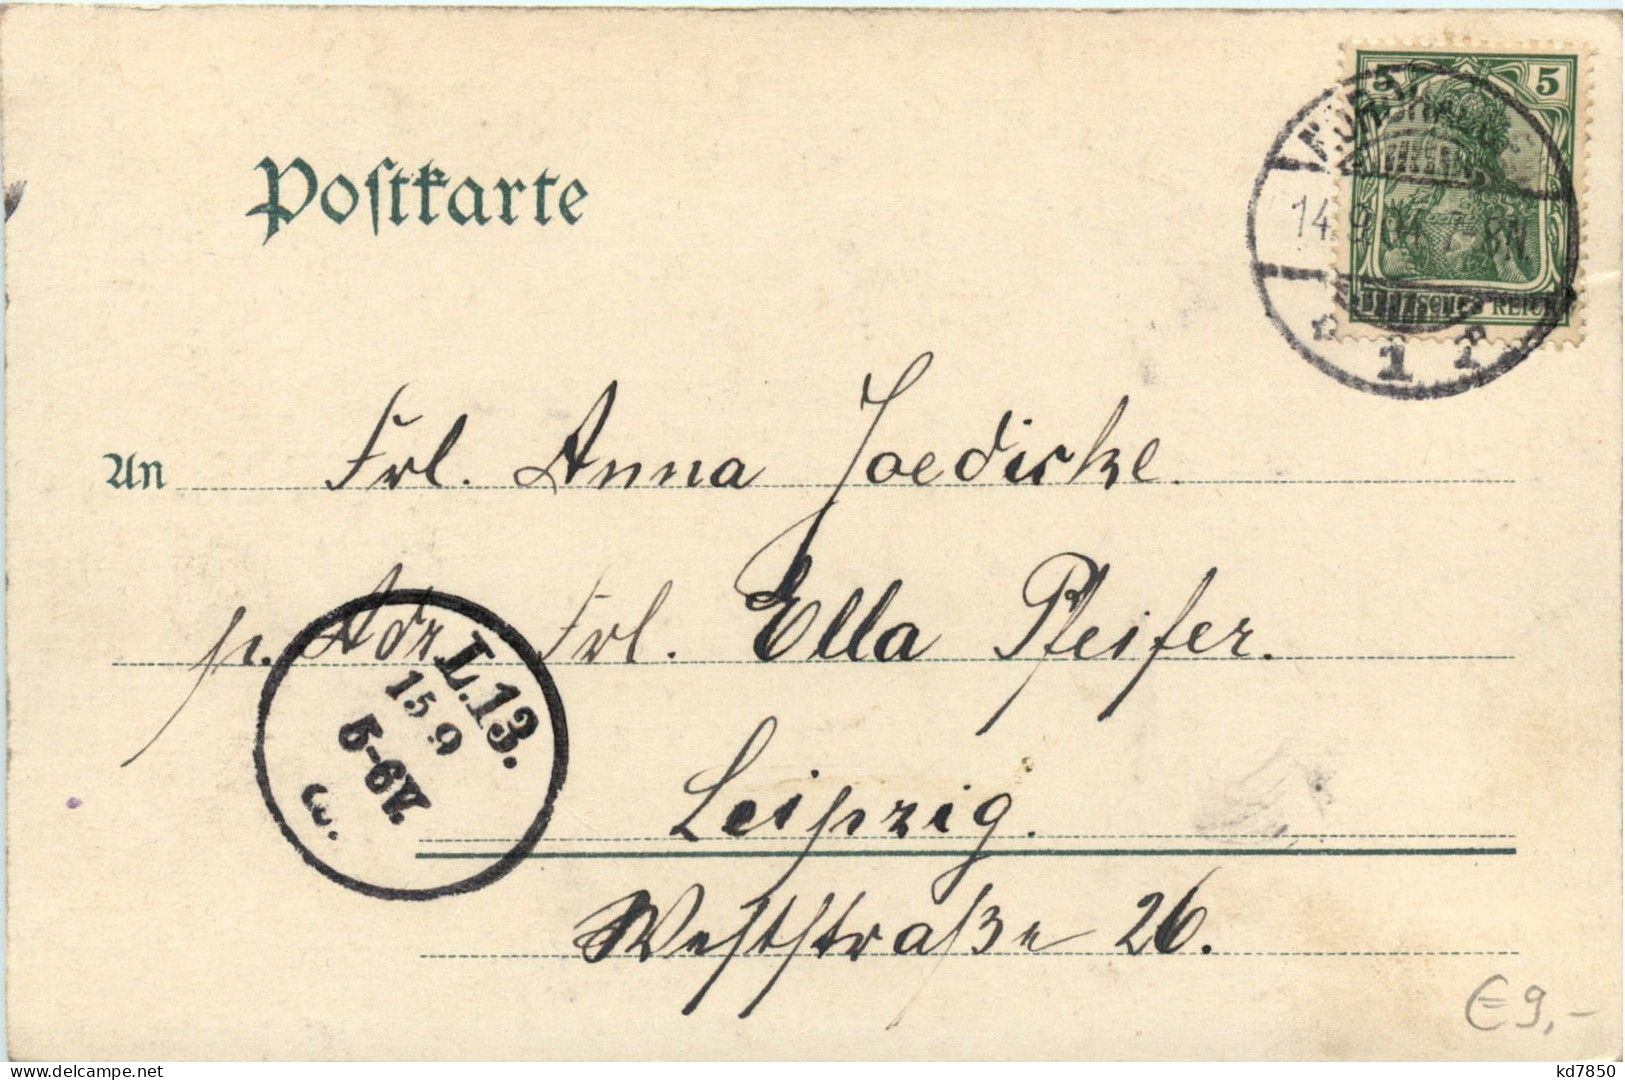 Postkarte
5 5
14.9.04. 7-8N.
DEUTSCHES REICH
1
An Frl. Anna Joedicke.
p. Adr. Frl. Ella Pfeifer.
L.13.
15 9
5-6V.
Leipzig.
Weststraße 26.
€ 9,-
kd7850